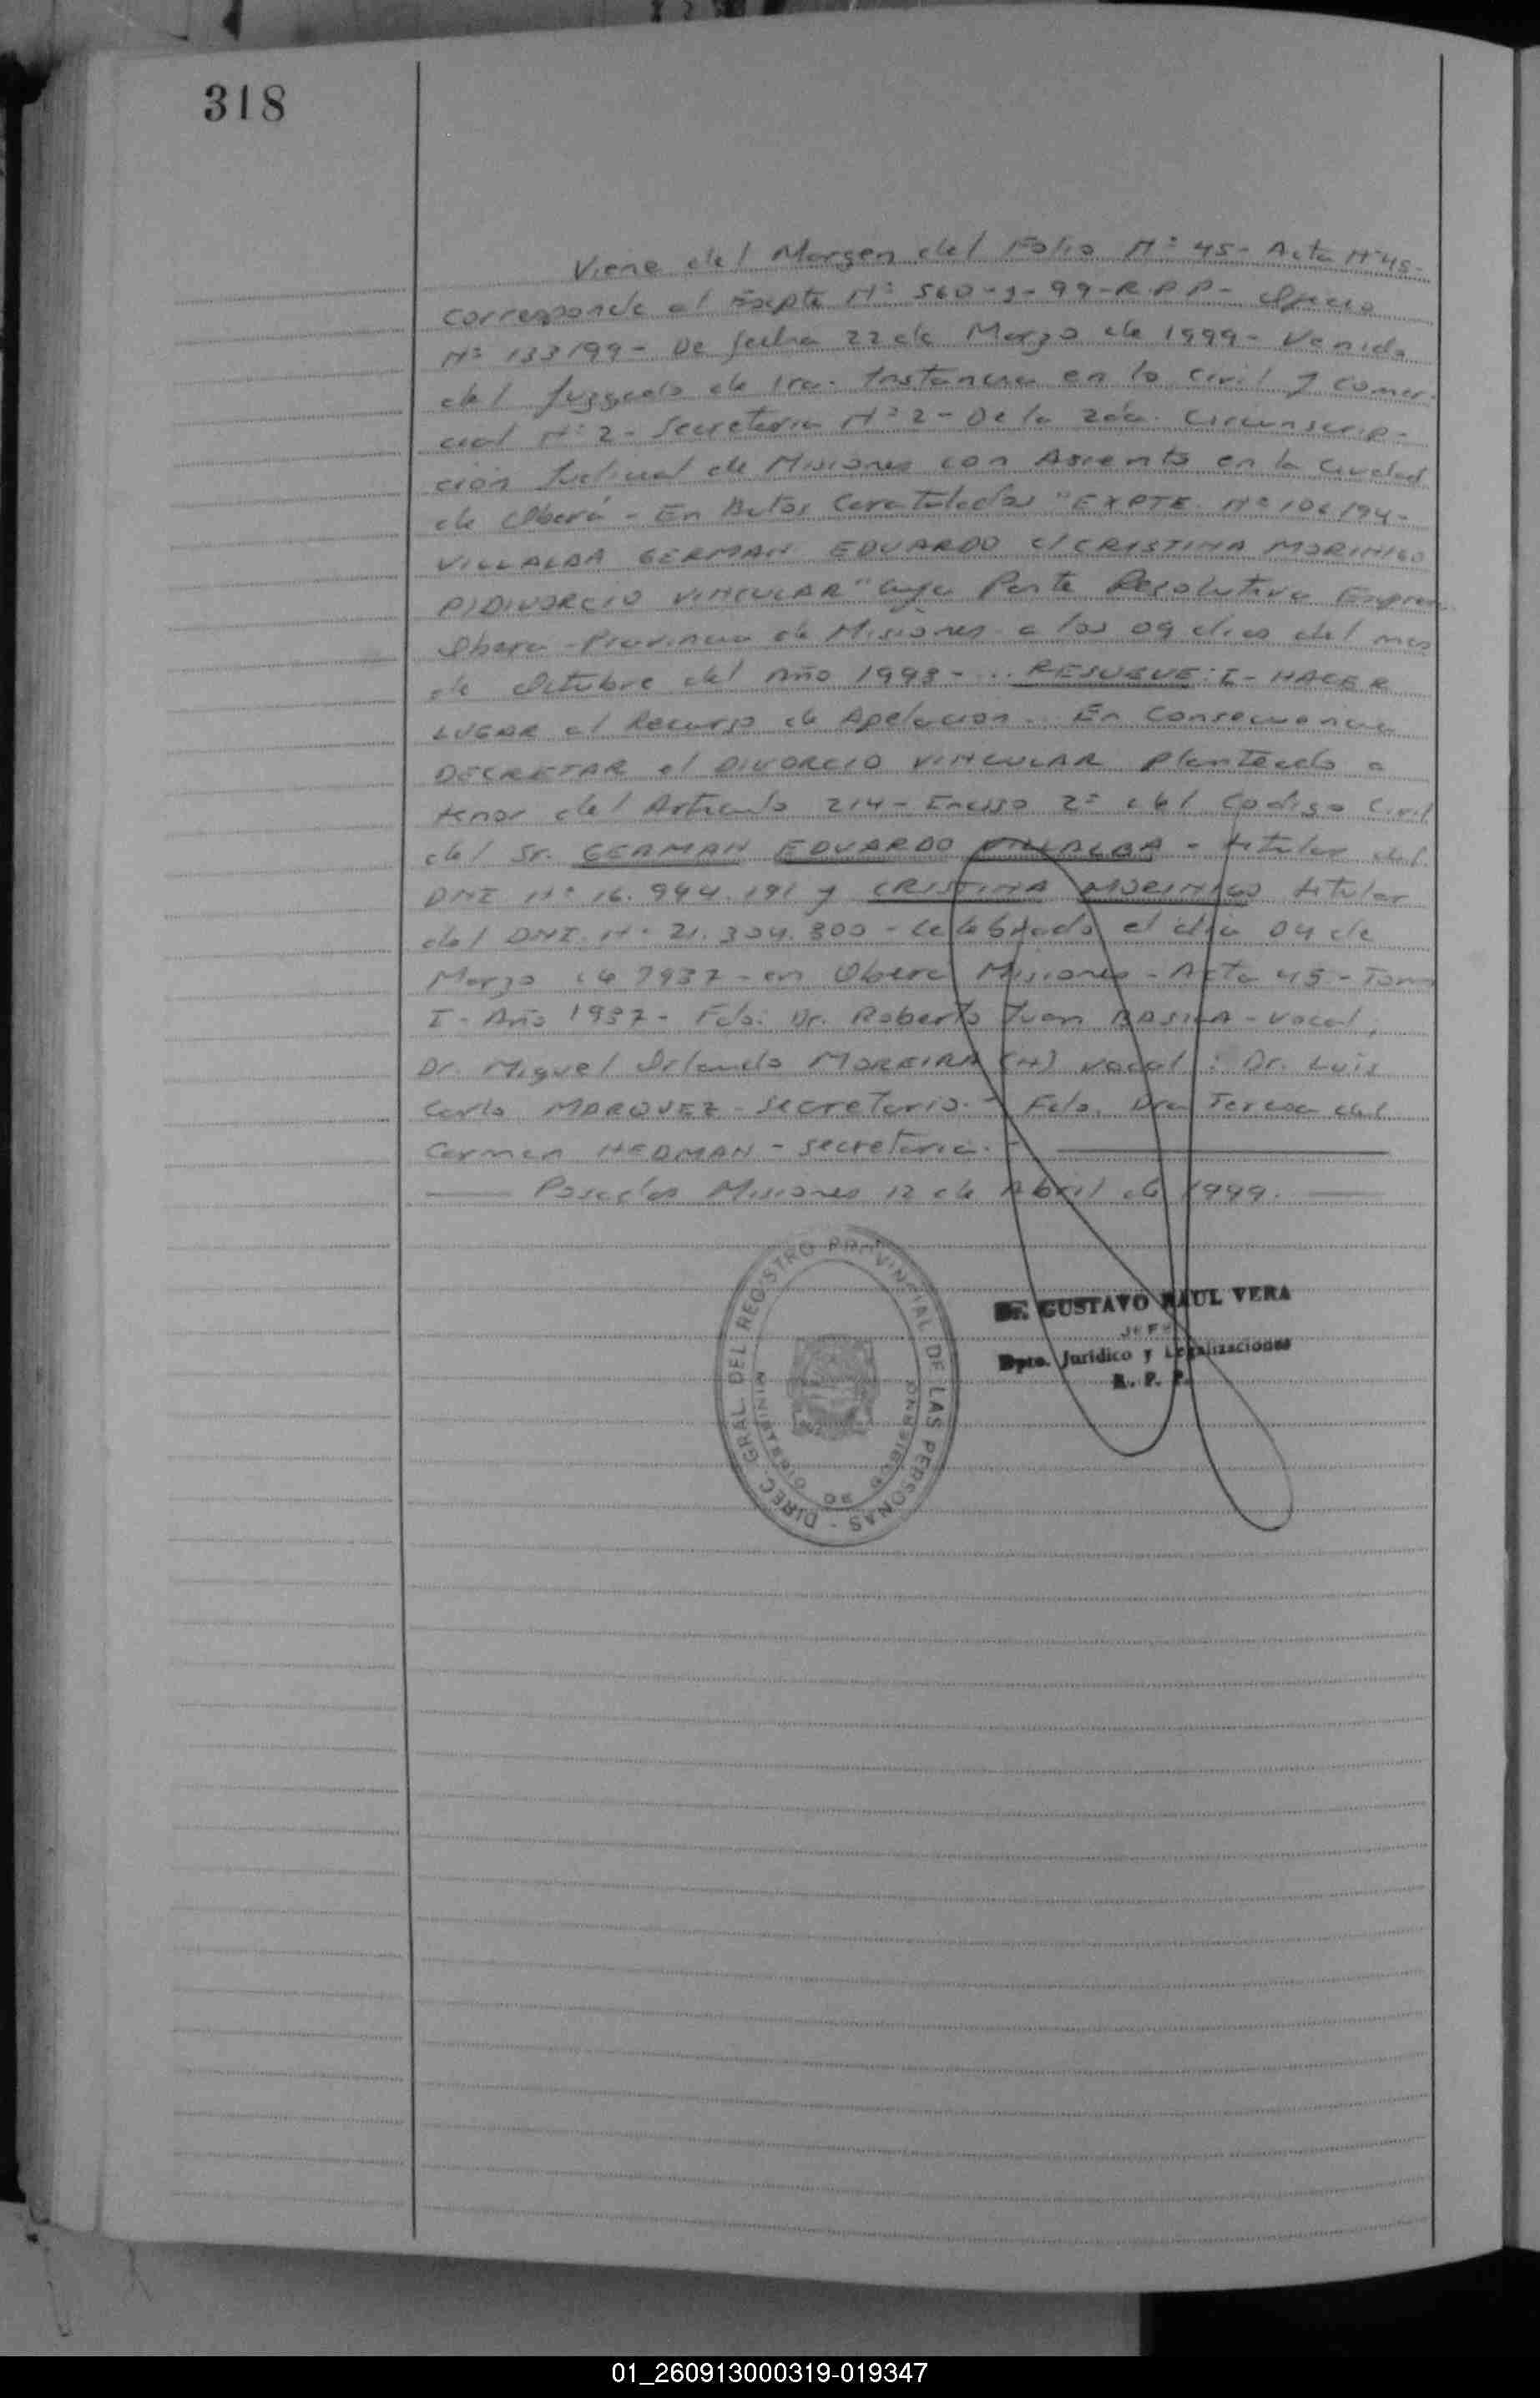 318
Viene del Margen del Folio Nº 45- Acta Nº 45-
corresponde al Expte Nº 560-9-99-R.P.P- Oficio
Nº 133/99- De fecha 22 de Marzo de 1999- Venido
del Juzgado de 1ra. Instancia en lo Civil y Comer-
cial Nº 2- Secretaria Nº 2- De la 2da. Circunscrip-
ción Judicial de Misiones con Asiento en la Ciudad
de Oberá- En Autos Caratulados "EXPTE. Nº 106/94-
VILLALBA GERMAN EDUARDO c/ CRISTINA MORINIGO
P/DIVORCIO VINCULAR" cuya Parte Resolutiva
Obera-Provincia de Misiones a los 09 dias del mes
de Octubre del Año 1998-... RESUELVE: I- HACER
LUGAR al Recurso de Apelacion.. En Consecuencia
DECRETAR el DIVORCIO VINCULAR planteado a
tenor del Articulo 214- Inciso 2º del Codigo Civil
del Sr. GERMAN EDUARDO VILLALBA - titular del
DNI Nº 16.944.191 y CRISTINA MORINIGO titular
del DNI. Nº 21.304.300 - celebrado el dia 04 de
Marzo de 1987- en Obera Misiones - Acta 45- Tomo
I- Año 1987- Fdo: Dr. Roberto Juan - Vocal;
Dr. Miguel Orlando MOREIRA (H) vocal: Dr. Luis
Carlo MARQUEZ- Secretario.- Fdo. Dra Teresa del
Carmen HEDMAN - secretaria.-
Posadas Misiones 12 de Abril de 1999.
DIREC. GRAL. DEL REGISTRO PROVINCIAL DE LAS PERSONAS -
MINISTERIO DE GOBIERNO
Dr. GUSTAVO RAUL VERA
JEFE
Dpto. Jurídico y Legalizaciones
R. P. P.
01_260913000319-019347